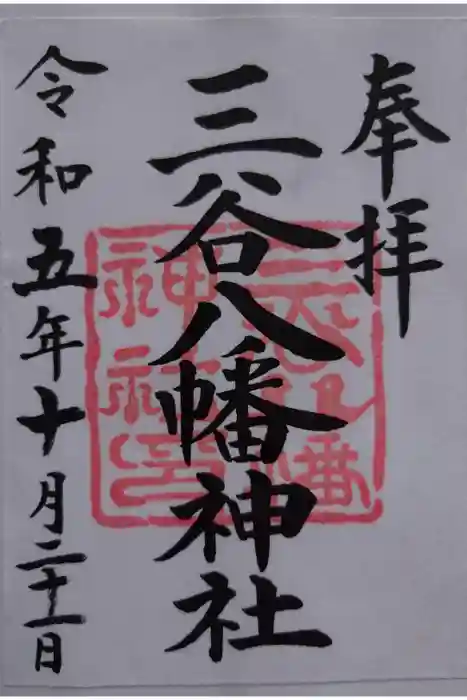 奉拝
三谷八幡神社
令和五年十月二十一日